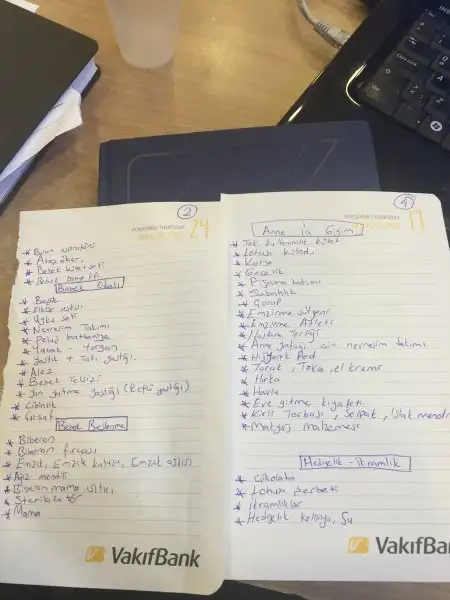 2
PERŞEMBE/THURSDAY
24
* Burun aspiratörü
* Ateş ölçer,
* Bebek bakım seti
Bebek Odası
* Beşik
* Elbise askısı
* Uyku seti
* Nevresim Takımı
* Peluş battaniye
* Yatak - Yorgan
* Yastık + Yatış yastığı.
* Alez
* Bebek Telsizi
* Yan yatma yastığı (Reflü yastığı)
* Cibinlik
Bebek Beslenme
* Biberon
* Biberon fırçası
* Emzik, Emzik kutusu, Emzik askısı
* Ağız mendili
* Biberon mama ısıtıcı
* Sterilizatör
* Mama
VakıfBank
4
PERŞEMBE/THURSDAY
17
Anne İç Giyim
* Tek kullanımlık külot
* Lohusa külodu
* Korse
* Gecelik
* Pijama takımı
* Sabahlık
* Çorap
* Emzirme sütyeni
* Emzirme Atleti
* Hastane Terliği
* Anne yatağı için nevresim takımı
* Hijyenik Ped
* Tarak, Toka, el kremi
* Hırka
* Havlu
* Eve gitme kıyafeti
* Kirli Torbası, Selpak, Islak mendil
Hediyelik - ikramlık
* Çikolata
* Lohusa Şerbeti
* ikramlıklar
* Hediyelik kolonya, Su
VakıfBa